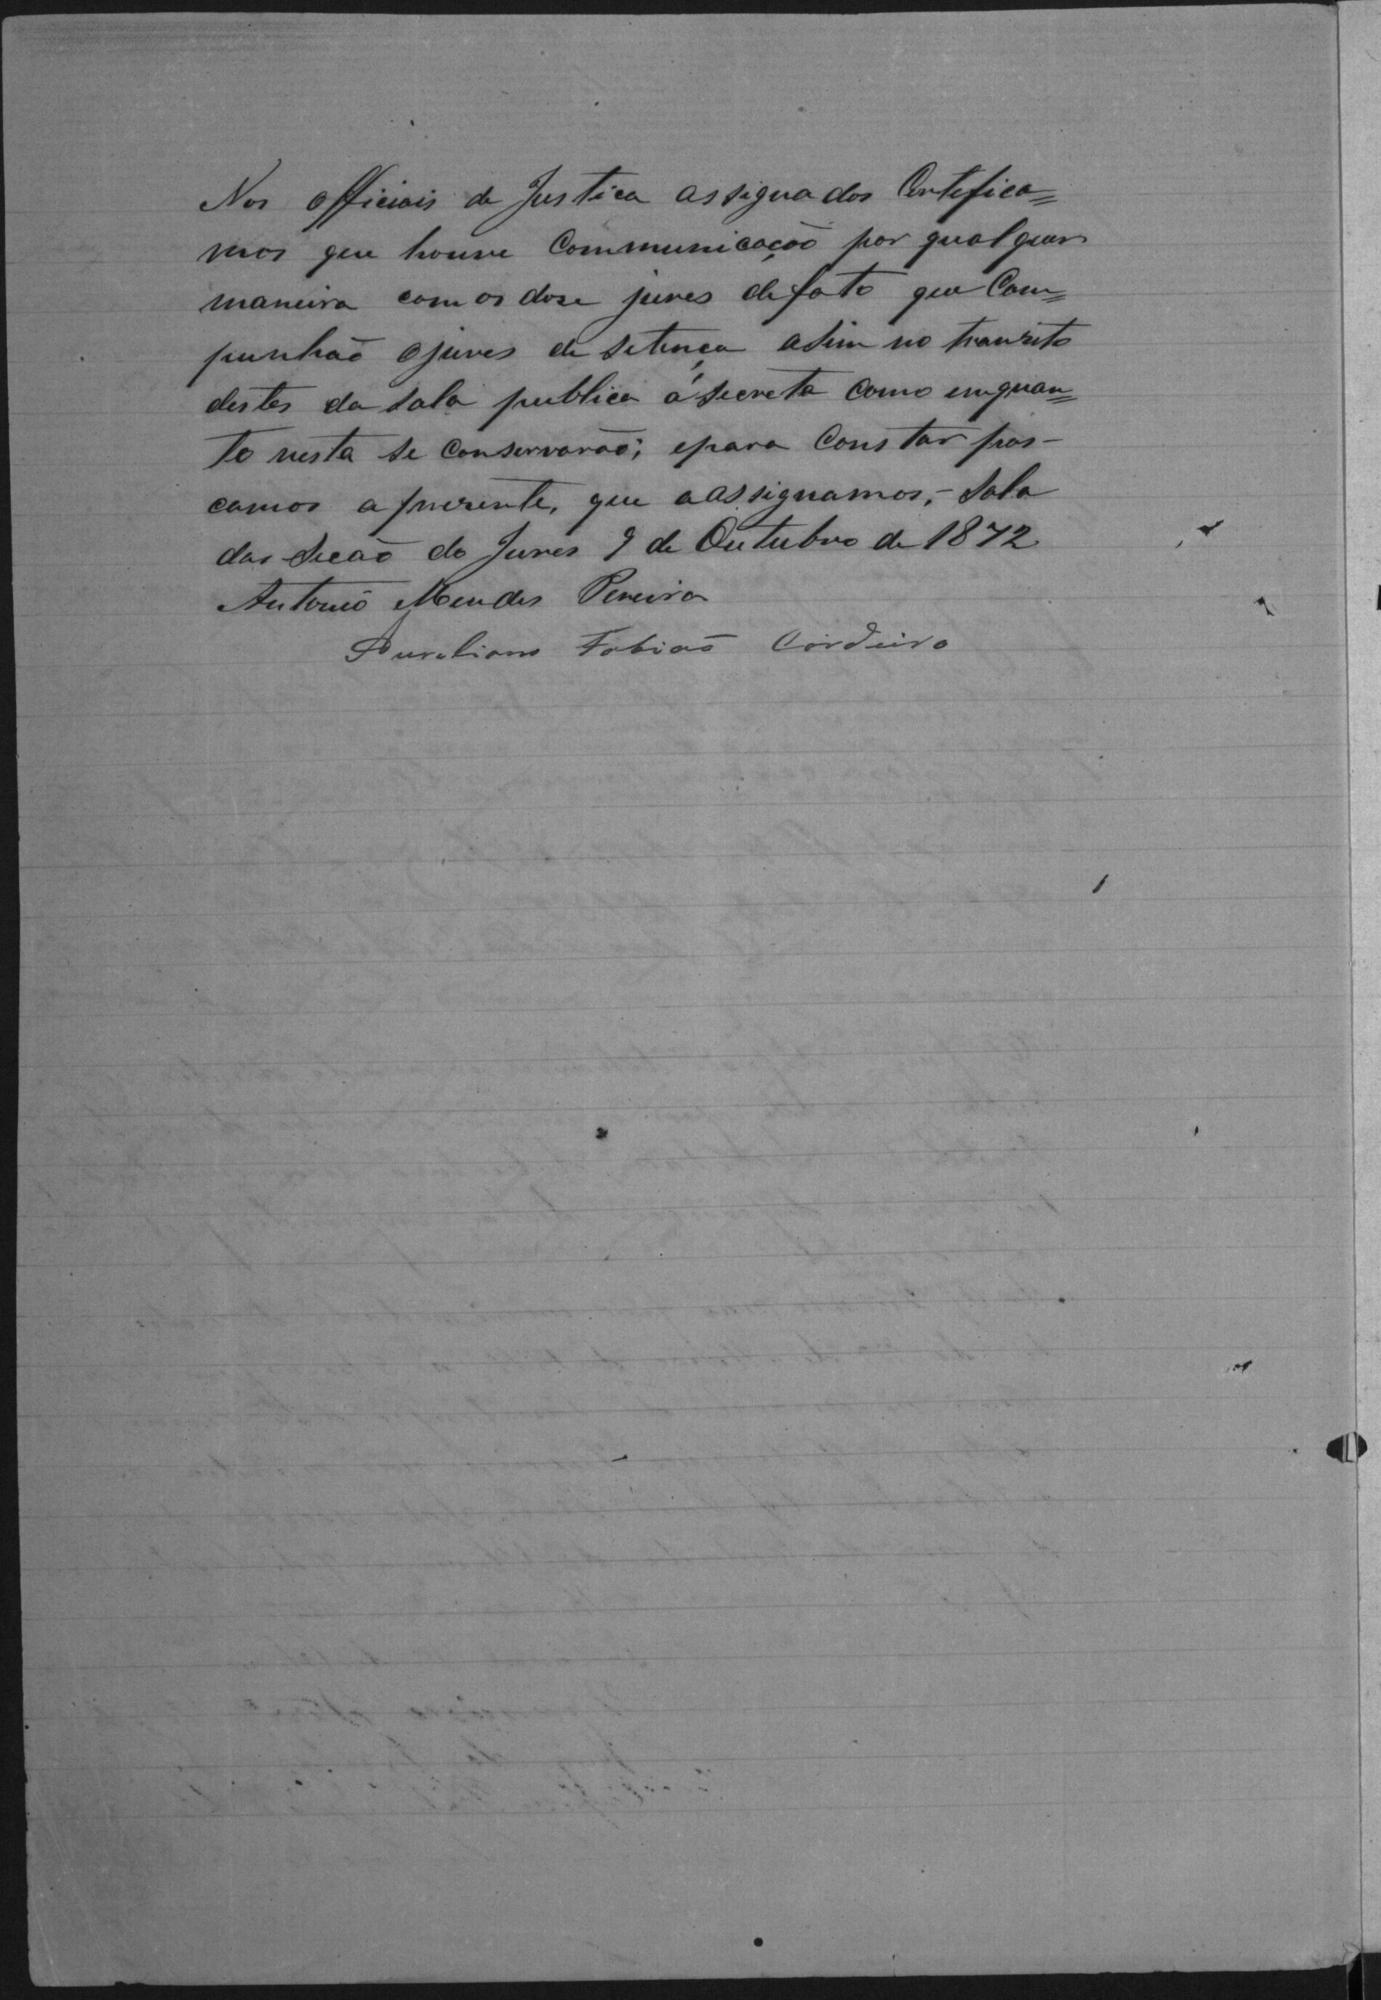 Nos officiais de Justica assignados Certefica=
mos que houve Communicação por qualquer
maneira com os dose jures de fato que Com=
punhão o jures de setença asim no transito
destes da sala publica á secreta como enquan=
to nesta se conservarão; e para Constar pas-
camos a prezente, que a assignamos,- Sala
das Secão do Jures 9 de Outubro de 1872
Antonio Mendes Pereira
Aureliano Fabião Cordeiro